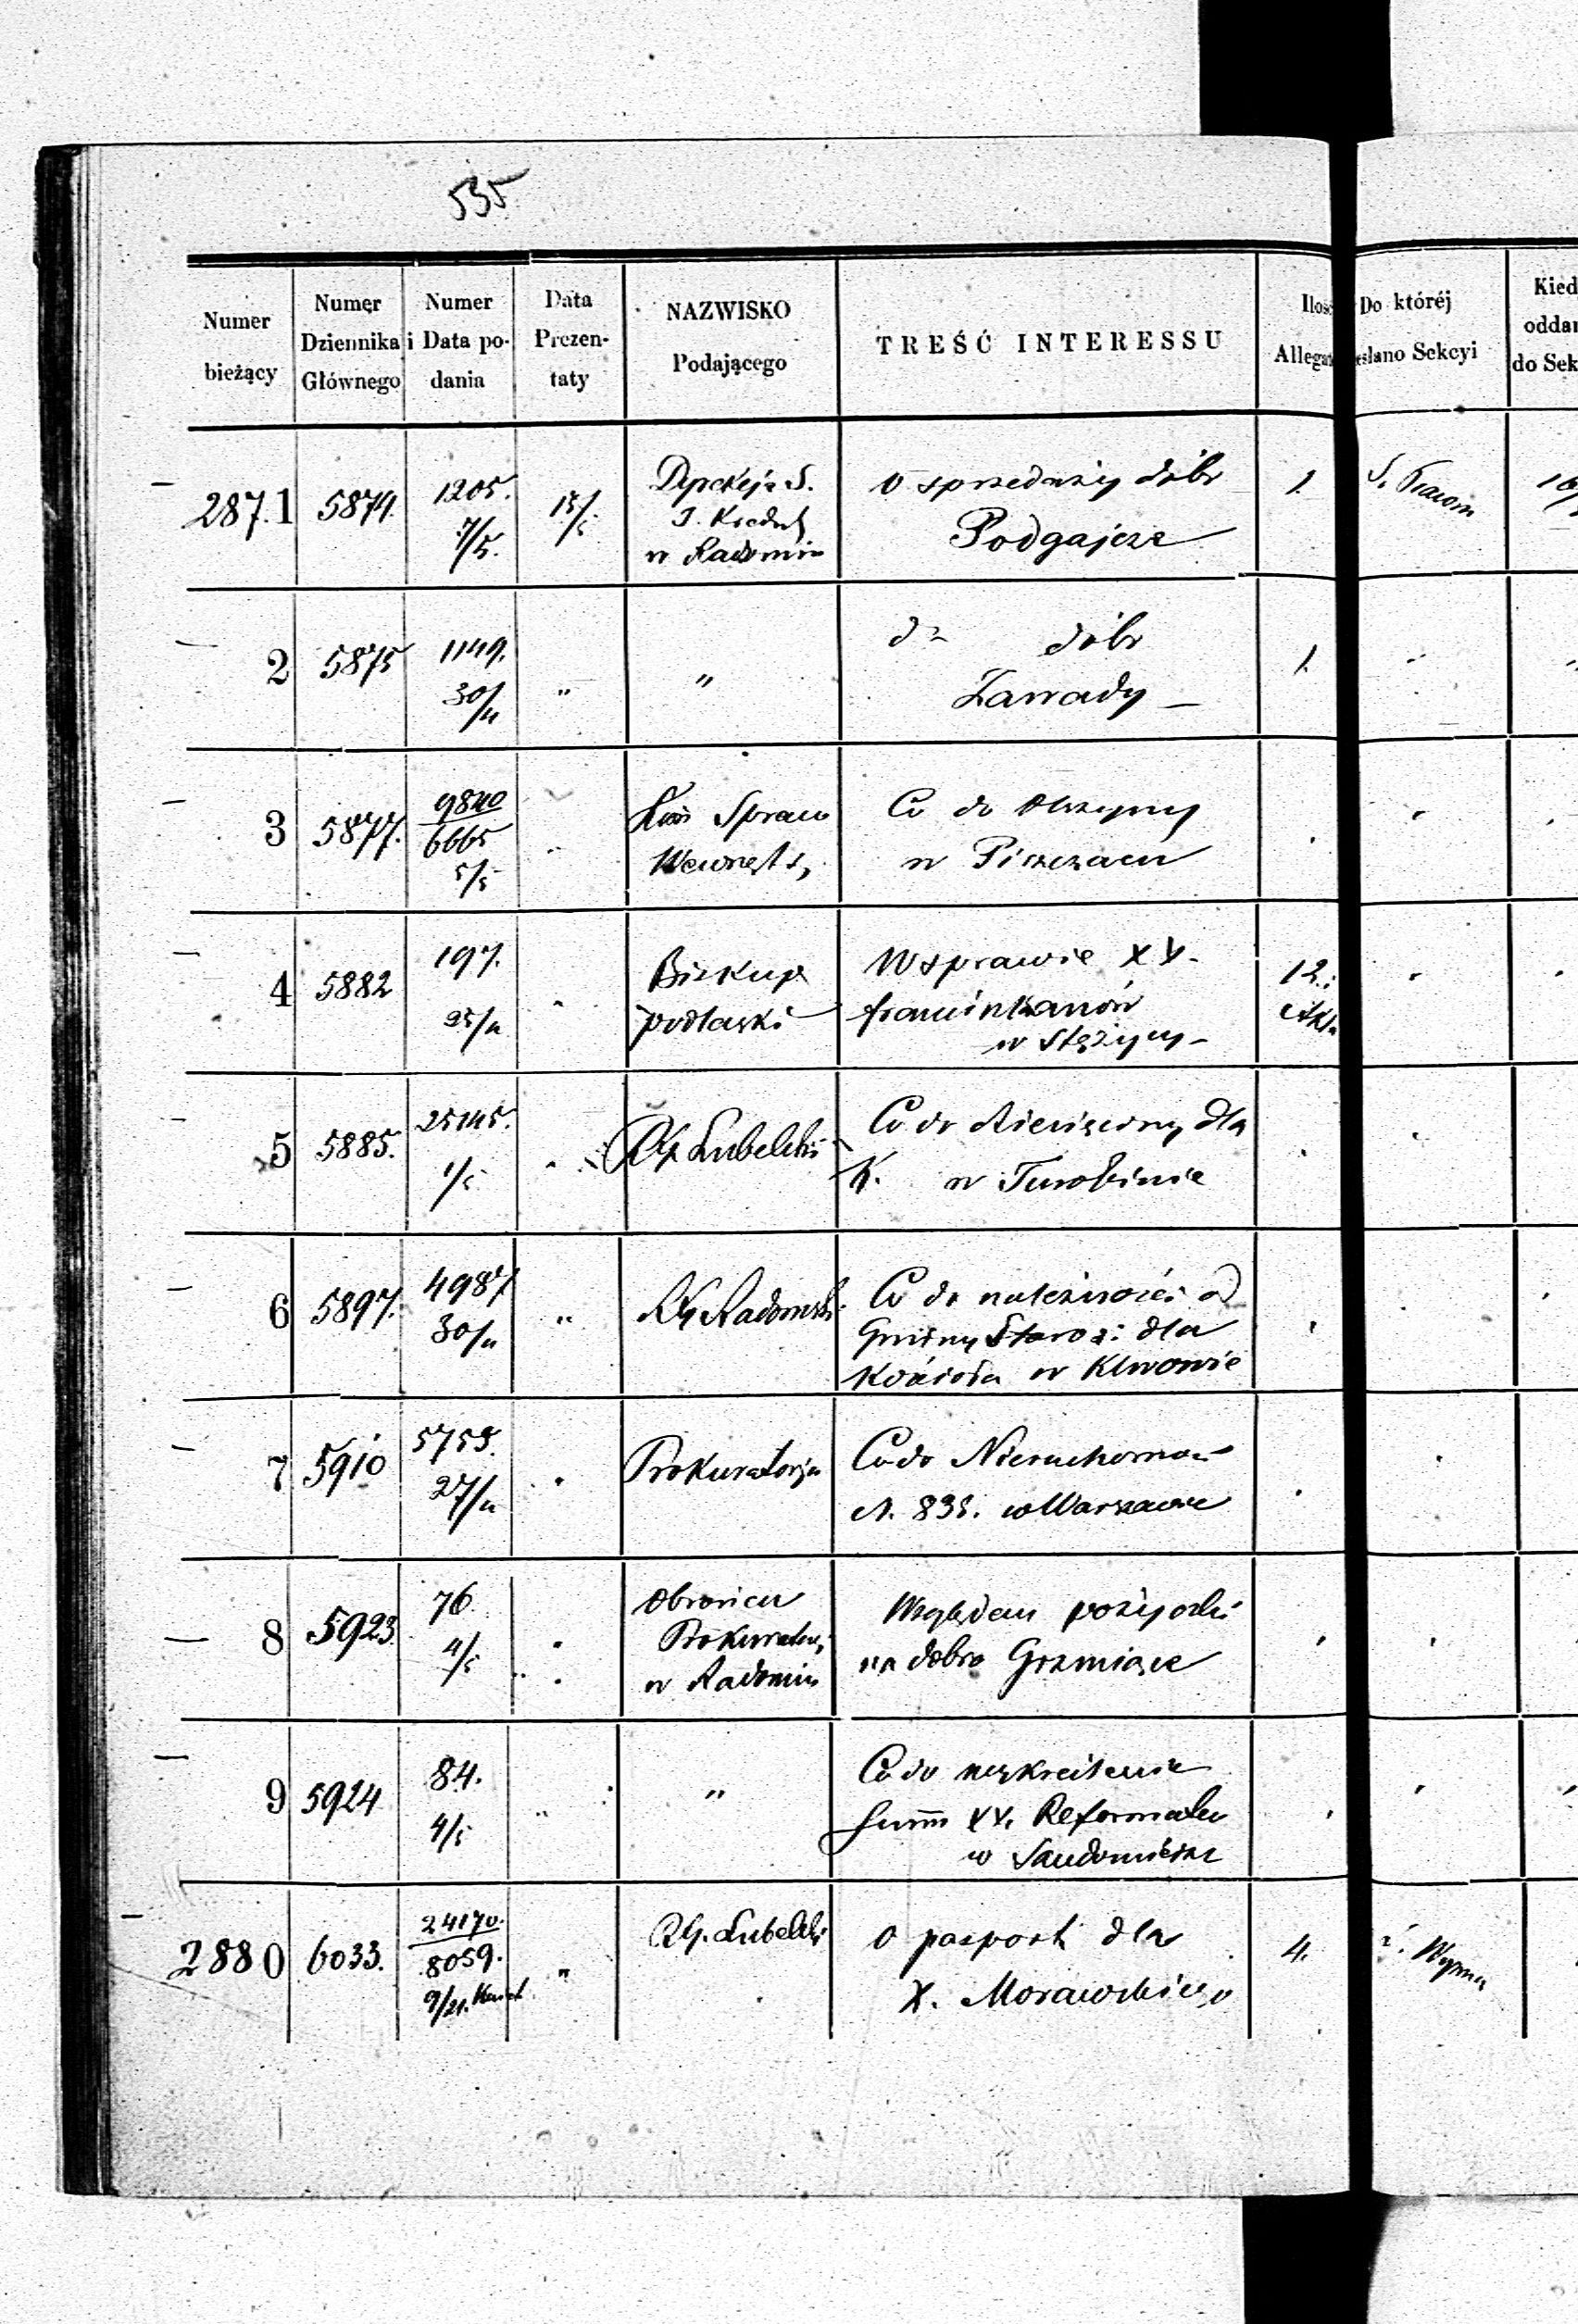 535
Numer bieżący
Numer Dziennika Głównego
Numer i Data podania
Data Prezen- taty
NAZWISKO Podającego
TREŚĆ INTERESSU
Ilość Allegat
Do któréj esłano Sekcyi
Kied oddan do Sek
287.1 5874. 1205. 7/5. 15/5 1.
Dyrekcja S.
w Radomiu
O sprzedaży dóbr
Podgajcze
2 5875 1149. 30/4 " " 1.
do dóbr
Zawady
3 5877. 9840 6665 5/5
Kom Spraw
Wewnętz,
Co do
w Piszczacu
4 5882 197. 25/4
Biskup
podlaski
W sprawie XX.
franciszkanów
w Stężycy
12.
5 5885. 25145. 1/5
RG. Lubelski
Co do dla
K. w Turobinie
6 5897. 4987 30/4 "
RG Radomski
Co do należności od
Gminy Staroz: dla
Kościoła w Klwowie
7 5910 5753. 27/4
Prokuratorja
Co do Nieruchomoś
N. 835. w Warszawie
8 5923. 76 4/5
Obrońca
Prokurator,
w Radomiu
Względem pożyczki
na dobra Grzmiące
9 5924 84. 4/5 " "
Co do wykreślenia
Summ XX. Reformatów
w Sandomierzu
2880 6033. 24170. 8059. 9/21. " 4.
RG. Lubelski
O pasport dla
X. Morawskiego